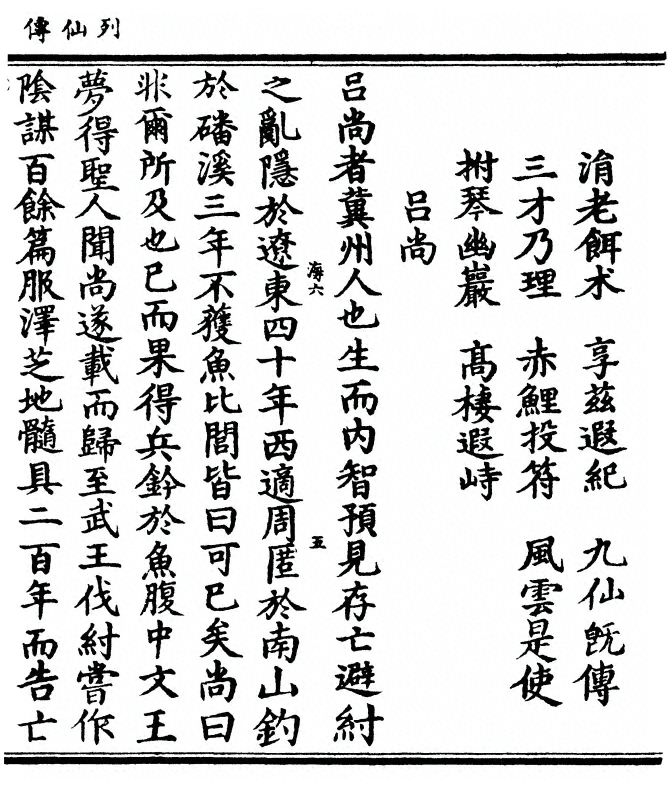 列仙傳
涓老餌术　享茲遐紀　九仙旣傳
三才乃理　赤鯉投符　風雲是使
拊琴幽巖　高棲遐峙
吕尚
吕尚者冀州人也生而内智預見存亡避紂
海六　五
之亂隱於遼東四十年西適周匿於南山釣
於磻溪三年不獲魚比閭皆曰可已矣尚曰
非爾所及也已而果得兵鈐於魚腹中文王
夢得聖人聞尚遂載而歸至武王伐紂嘗作
陰謀百餘篇服澤芝地髓具二百年而告亡